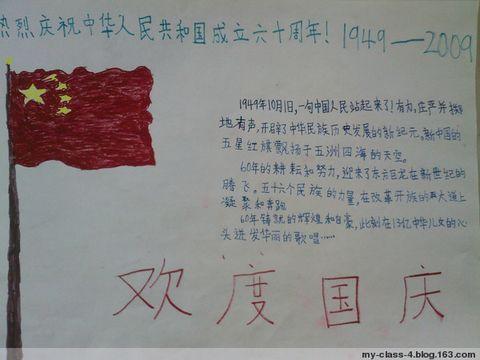 热烈庆祝中华人民共和国成立六十周年！1949—2009
1949年10月1日，一句中国人民站起来了！有力，庄严并掷
地有声，开辟了中华民族历史发展的新纪元。新中国的
五星红旗飘扬于五洲四海的天空。
60年的耕耘和努力，迎来了东方巨龙在新世纪的
腾飞。五十六个民族的力量，在改革开放的大道上
凝聚和奔跑
60年铸就的辉煌和自豪，此刻在13亿中华儿女的心
头迸发华丽的歌唱……
欢度国庆
my-class-4.blog.163.com